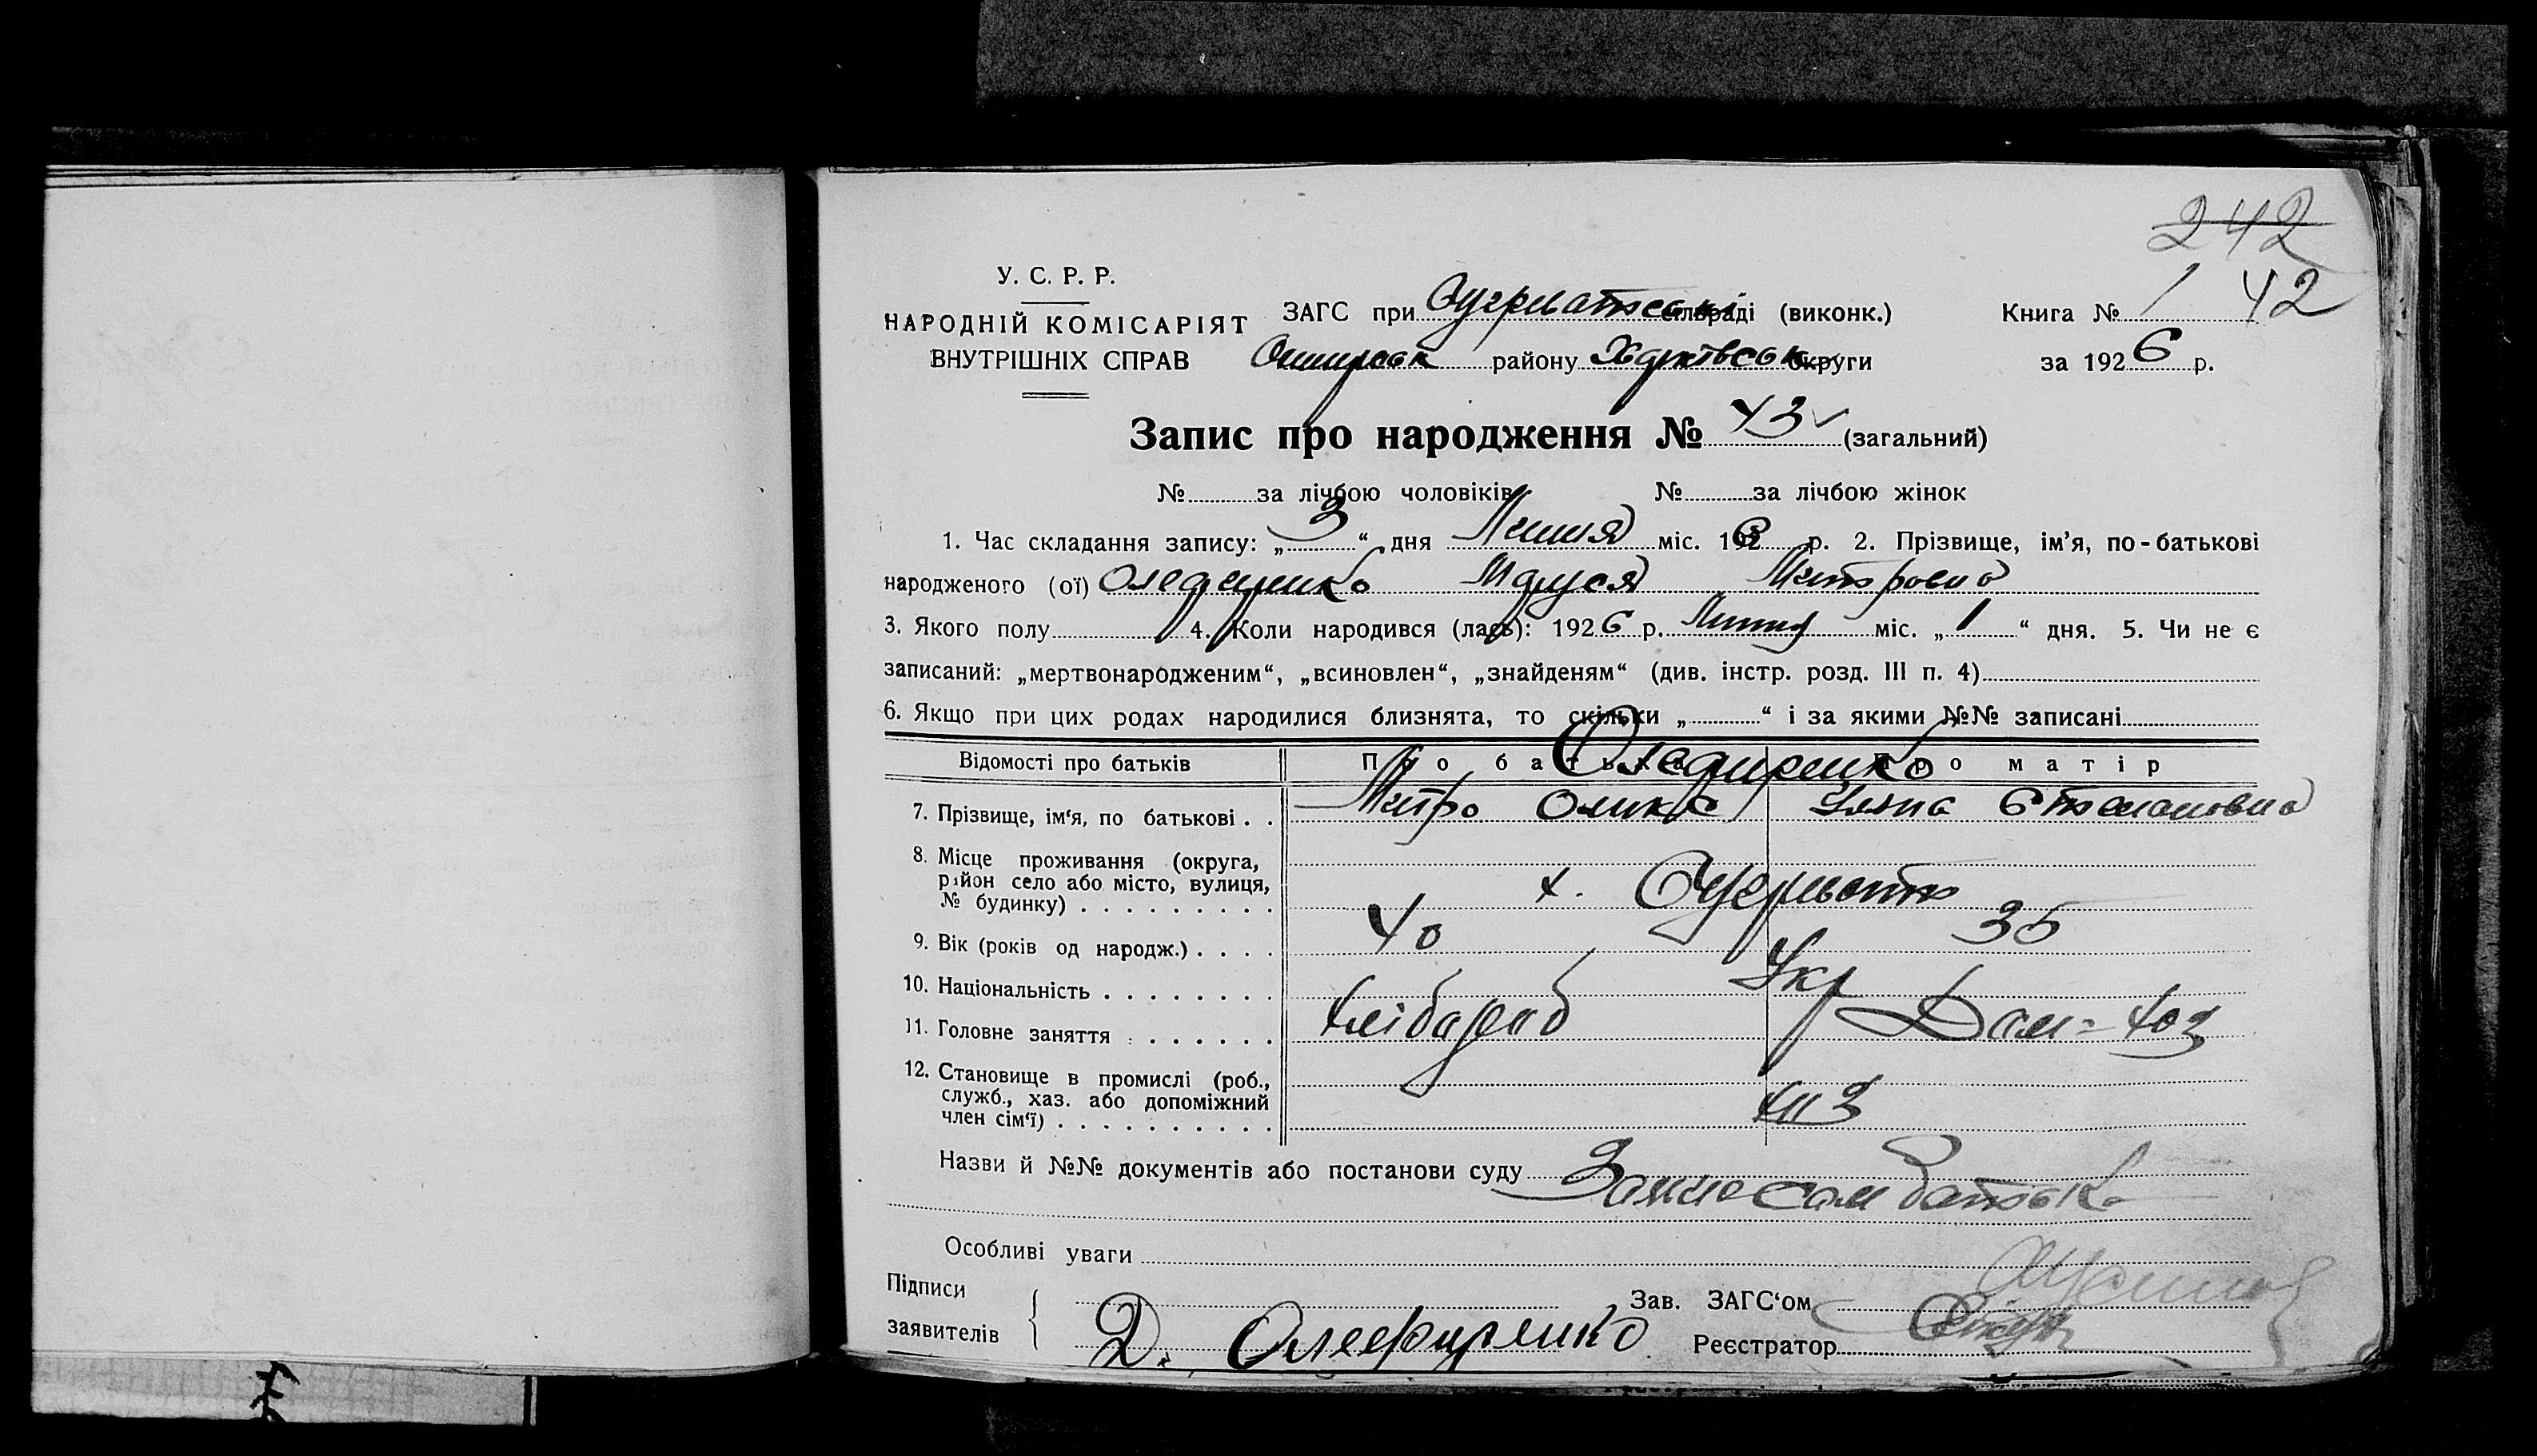 242
У. С. Р. Р.
НАРОДНІЙ КОМІСАРІЯТ
ВНУТРІШНІХ СПРАВ
ЗАГС при сільраді (виконк.)
району Харківськ округи
Книга № 1 42
за 1926 р.
Запис про народження № 43 (загальний)
№ за лічбою чоловіків № за лічбою жінок
1. Час складання запису: „ 3 “ дня Липня міс. 1926 р. 2. Прізвище, ім’я, по-батькові
народженого (ої) Олефиренко Маруся Митровна
3. Якого полу 4. Коли народився (лась): 1926 р. Липня міс. „ 1 “ дня. 5. Чи не є
записаний: „мертвонародженим“, „всиновлен“, „знайденям“ (див. інстр. розд. III п. 4)
6. Якщо при цих родах народилися близнята, то скільки „ “ і за якими №№ записані
Відомості про батьків Про батька Про матір
Олефиренко
7. Прізвище, ім‘я, по батькові . . Митро Уляна Степановна
8. Місце проживання (округа,
район село або місто, вулиця,
№ будинку) . . . . . . . . . х.
9. Вік (років од народж.) . . . . 40 35
10. Національність . . . . . . . . Укр
11. Головне заняття . . . . . . . Хлібороб Дом-хоз
12. Становище в промислі (роб.,
служб., хаз. або допоміжний
член сім‘ї) . . . . . . . . . .
Назви й №№ документів або постанови суду Заяв сам батько
Особливі уваги
Підписи
заявителів Д. Олефиренко
Зав. ЗАГС‘ом
Реєстратор